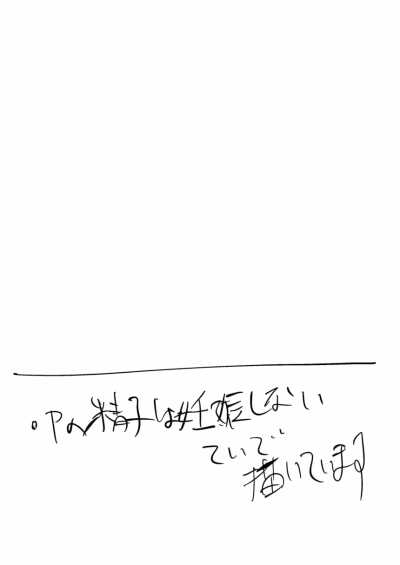 ・Pの精子は妊娠しない
ていで
描いています